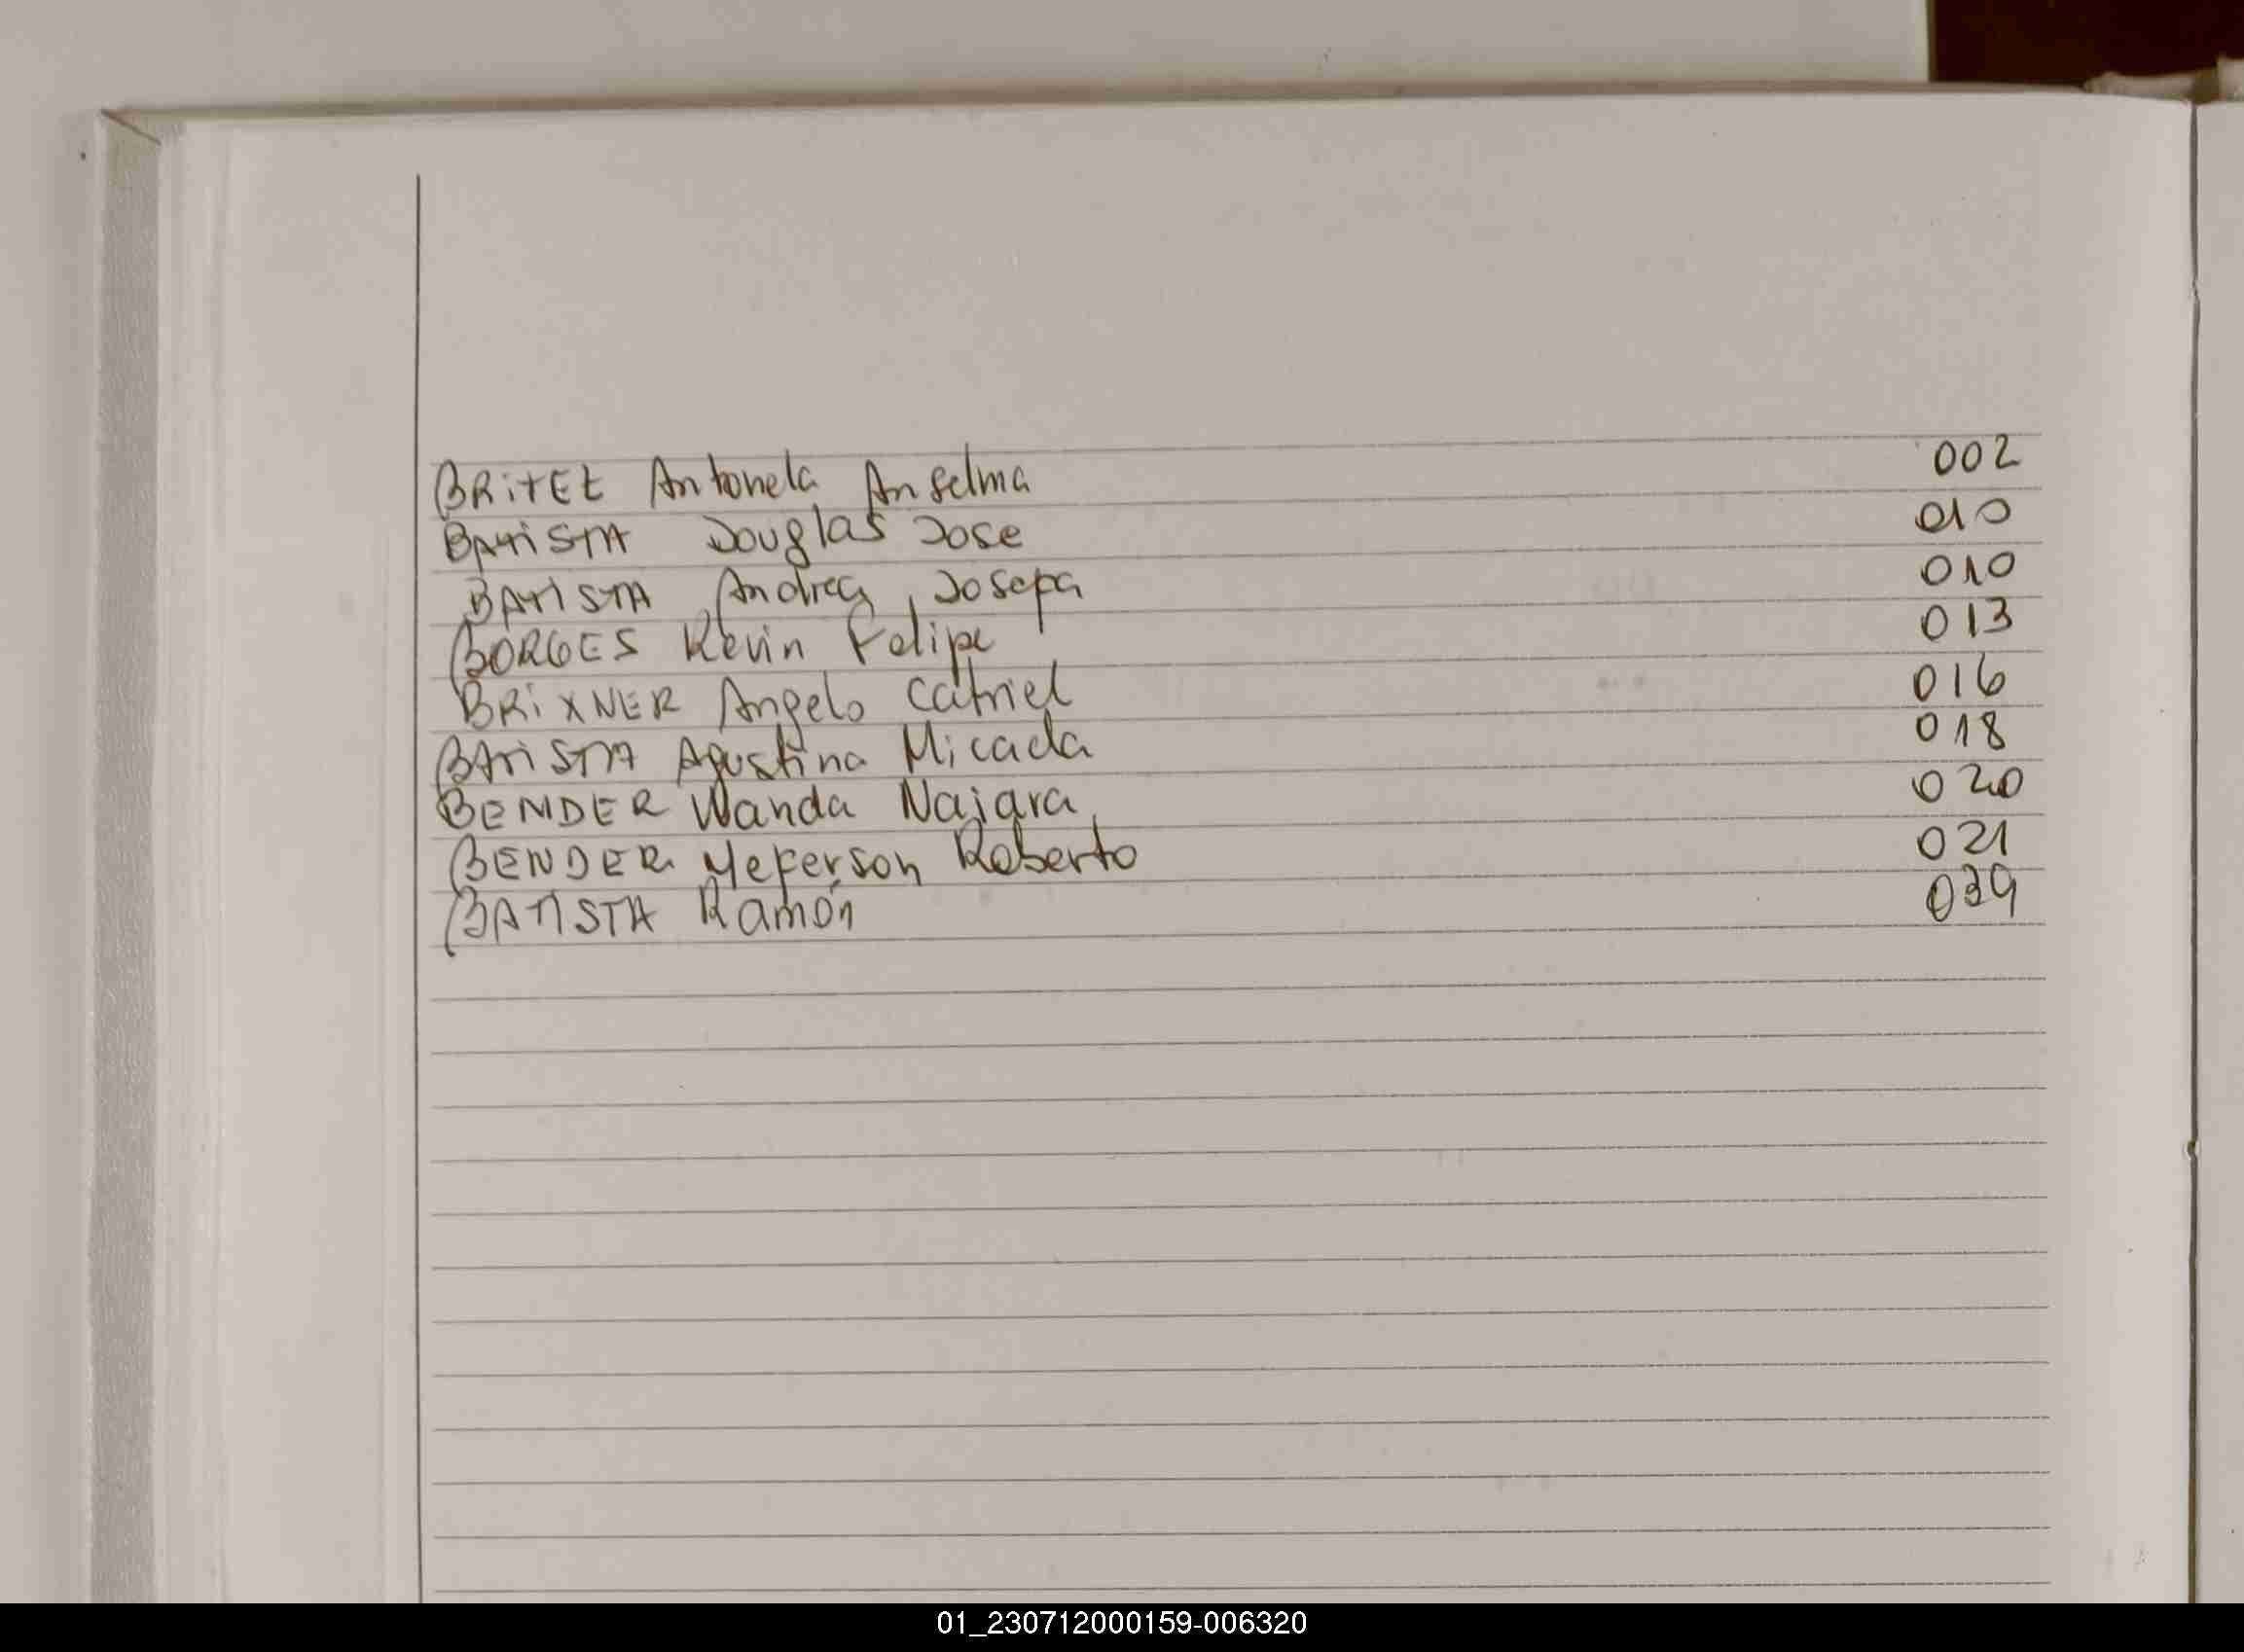 BRITEZ Antonela Anselma 002
BATISTA Douglas Jose 010
BATISTA Andrea Josefa 010
BORGES Kevin Felipe 013
BRIXNER Angelo Catriel 016
BATISTA Agustina Micaela 018
BENDER Wanda Naiara 020
BENDER Yeferson Roberto 021
BATISTA Ramón 039
01_230712000159-006320